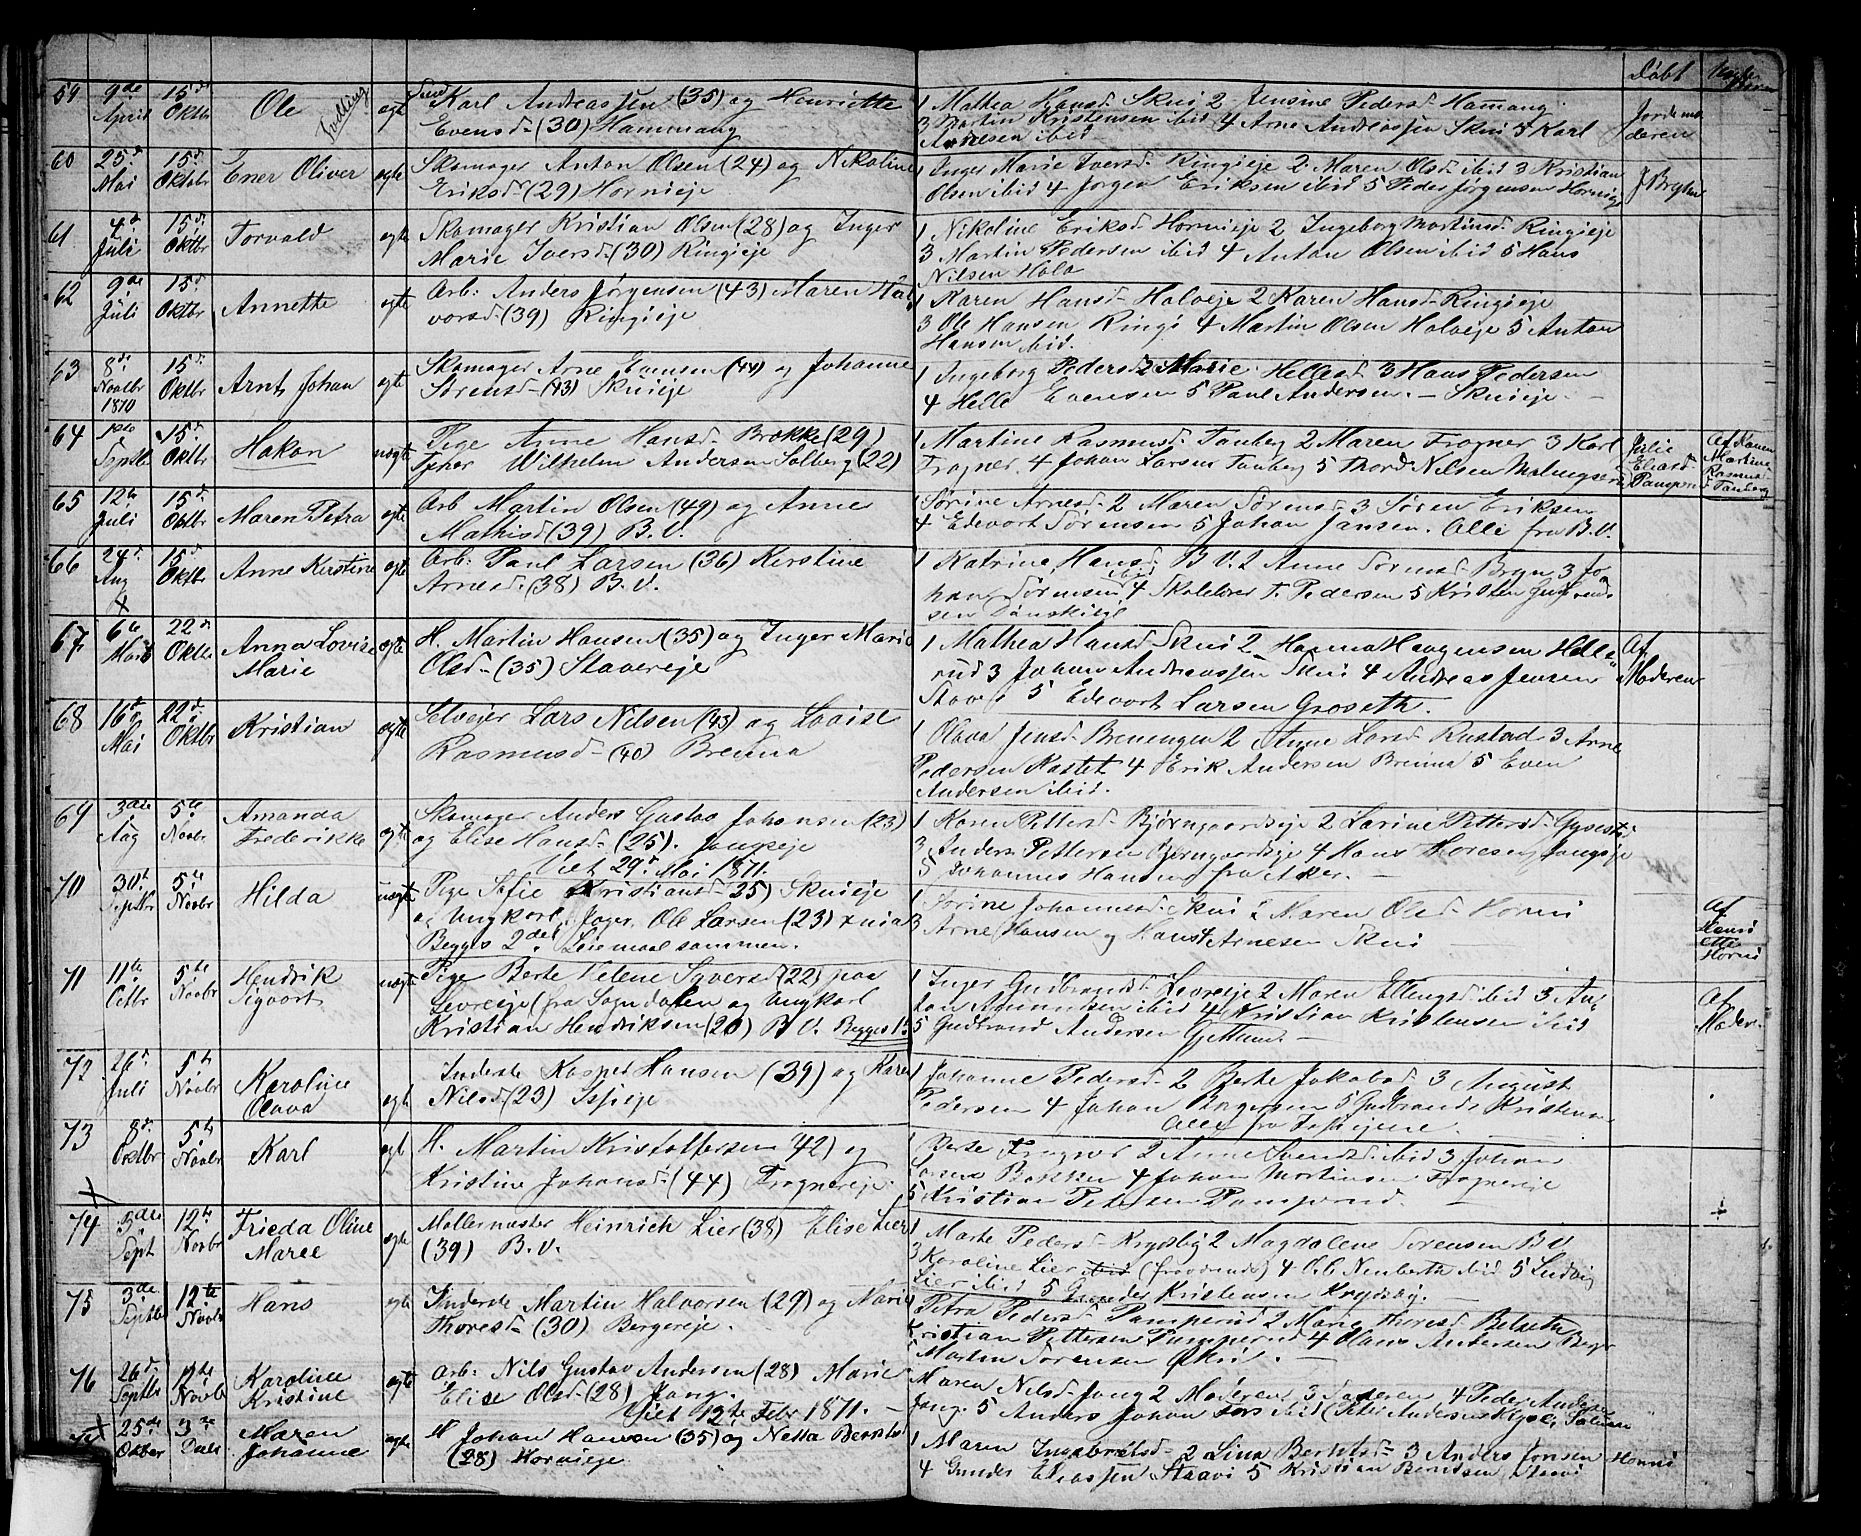 Döbt
59 9de April 15de Oktbr Ole Tvilling ægte Karl Andreassen (35) og Henriette
Evensd. (30) Hammang
1 Mathea Hansd. Skui 2 Jensine Pedersd. Hamang
3 Martin Kristensen ibid 4 Arne Andreassen Skui 5 Karl
Arnesen ibid
Jordemoderen
60 25de Mai 15de Oktobr Ener Oliver ægte Skomager Anton Olsen (24) og Nikoline
Eriksd. (29) Hornieje
1 Inger Marie Iversd. Ringieje 2 Maren Olsd. ibid 3 Kristian
Olsen ibid 4 Jørgen Eriksen ibid 5 Peder Jørgensen Hornieje
61 4de Juli 15de Oktbr Torvald ægte Skomager Kristian Olsen (28) og Inger
Marie Iversd. (30) Ringieje
1 Nikoline Eriksd. Hornieje 2 Ingeborg Martinsd. Ringieje
3 Martin Pedersen ibid 4 Anton Olsen ibid 5 Hans
Nilsen Hola
62 9de Juli 15de Oktbr Annette ægte Arb: Anders Jørgensen (43) Maren Hal
vorsd. (39) Ringieje
1 Karen Hansd. Holveje 2 Karen Hansd. Ringieje
3 Ole Hansen Ringi 4 Martin Olsen Holveje 5 Anton
Hansen ibid.
63 8de Novbr 1870 15de Oktbr Arnt Johan ægte Skomager Arne Evensen (44) og Johanne
Sörensd. (43) Skuieje
1 Ingeborg Pedersd. 2 Marie Hellesd. 3 Hans Pedersen
4 Helle Evensen 5 Paul Andersen. – Skuieje. –
64 Septb 15de Oktbr Hakon uægte Pige Anne Hansd. Brokke (29)
Wilhelm Andersen Solberg (22)
1 Martine Rasmusd. Tanberg 2 Maren Frogner 3 Karl
Frogner, 4 Johan Larsen Tanberg 5 Thord Nilsen
Julie Eliasd.
Af Konen Martine Rasmusd. Tanberg
65 12te Juli 15de Oktbr Maren Petra ægte Arb Martin Olsen (49) og Anne
Mathisd. (39) B.V.
Sörine Arnesd. 2 Maren Sörensd. 3 Sören Eriksen
4 Edevart Sörensen 5 Johan Jansen. Alle fra B.V.
66 24de Aug 15de Oktbr Anne Kirstine ægte Arb: Paul Larsen (36) Kerstine
Arnesd. (38) B.V.
1 Katrine Hansd. B V. 2 Anne Sörensd. Bryn 3 Jo
han Sörensen ibid 4 Skolelærer T. Pedersen 5 Kristen
67 6te 22de Oktbr Anna Lovise Marie ægte H. Martin Hansen (35) og Inger Marie
Olsd. (35) Stavereje
1 Mathea Hansd. Skui 2 Hanna Haagensen Helle
rud 3 Johan Andreassen Skui 4 Andreas Jensen
Staver 5 Edevart Larsen Groseth.
Af Moderen
68 16de Mai 22de Oktbr Kristian ægte Selveier Lars Nilsen (43) og Lovise
Rasmusd. (40) Brenna
1 Olava Jensd. Breningen 2 Anne Larsd. Rustad 3 Arne
Pedersen Kastet 4 Erik Andersen Brenna 5 Even
Andersen ibid.
69 3die Aug 5te Novbr Amanda Frederikke ægte Skomager Anders Gustav Johansen (23)
og Elise Hansd. (25). Jongseje
Viet 29de Mai 1871.
1 Karen Pettersd. Bjørngaardseje 2 Larine Pettersd.
3 Anders Pettersen Bjørngaardseje 4 Hans Thoresen Jongseje
5 Johannes Hansen fra Asker. –
70 30te Septbr 5te Novbr Hilda uægte Pige Sofie Kristiansd. 25) Skuieje
og Ungkarl, Jæger Ole Larsen (23)
Begges 2det Leiermaal sammen.
1 Sörine Johannesd. Skui 2 Maren Olsd. Horni
3 Arne Hansen og Hans 4 Arnesen Skui
Af Henriette Horni
71 11te Octbr 5te Novbr Hendrik Sigvart uægte Pige Berte Helene Syversd. (22) paa
Levreeje (fra Sogndalen og Ungkarl
Kristian Hendriksen (20) B V. Begges 1ste
1 Inger Gudbrandsd. Levreeje 2 Maren Ellingsd. ibid 3 An
ton Asmundsen ibid 4 Kristian Kristensen ibid
5 Gudbrand Andersen Gjettum. –
Af Moder.
72 26de Juli 5te Novbr Karoline Olava ægte Inderste Kasper Hansen (39) og Karen
Nilsd. (23) Isieje
1 Johanne Pedersd. 2 Berte Jakobsd. 3 August
Pedersen 4 Johan Borgersen 5 Gudbrand Kristensen
Alle fra Isieiene.
73 8de Oktbr 5te Novbr Karl ægte H. Martin Kristoffersen 42) og
Kristine Johansd. (44) Frognereje.
Berte Frogner 2 Anne Svendsd. ibid 3 Johan
Larsen Bakken 4 Johan Mortinsen Frognereje
5 Kristian Petersen Pamperud.
74 3die Sept 12te Novbr Frieda Oline Maree ægte Möllermester Heinrich Lier (38) Elise Lier
(39) B.V.
1 Marte Pedersd. Krydsby 2 Magdalene Sorensen B.V.
3 Karoline Lier ibid (fraværende) 4 Neuberth ibid 5 Ludvig
Lier ibid 5 Gunder Kristensen Krydsby.
75 3die Septbr 12te Novbr Hans ægte Inderste Martin Halvorsen (29) og Marie
Thoresd. (30) Bergereje.
1 Petra Pedersd. Pamperud 2 Marie Thoresd. Belseth
Kristian Pettersen Pamperud 4 Hans Andersen Berger
Martin Sorensen Skui. –
76 26de Septbr 12te Novbr Karoline Kristine ægte Arb: Nils Gustav Andersen (28) Marie
Elise Olsd. (28) Jong.
Viet 12te Febr 1871. –
Maren Nilsd. Jong 2 Moderen 3 Faderen 4 Peder Andersen
Jong. 5 Anders Johan
25de Oktber 3de Maren Johanne ægte H Johan Hansen (35) og Netta Berntsd.
(28) Hornieje
1 Maren Ingebretsd. 2 Lina Berntsd. 3 Anders Jonsen Horni
4 Gunder Eliassen Staavi 5 Kristian Berntsen Staavi